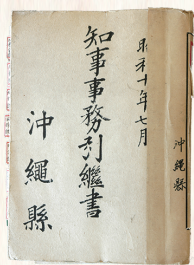 昭和十年七月
知事事務引繼書
沖繩縣
沖繩縣